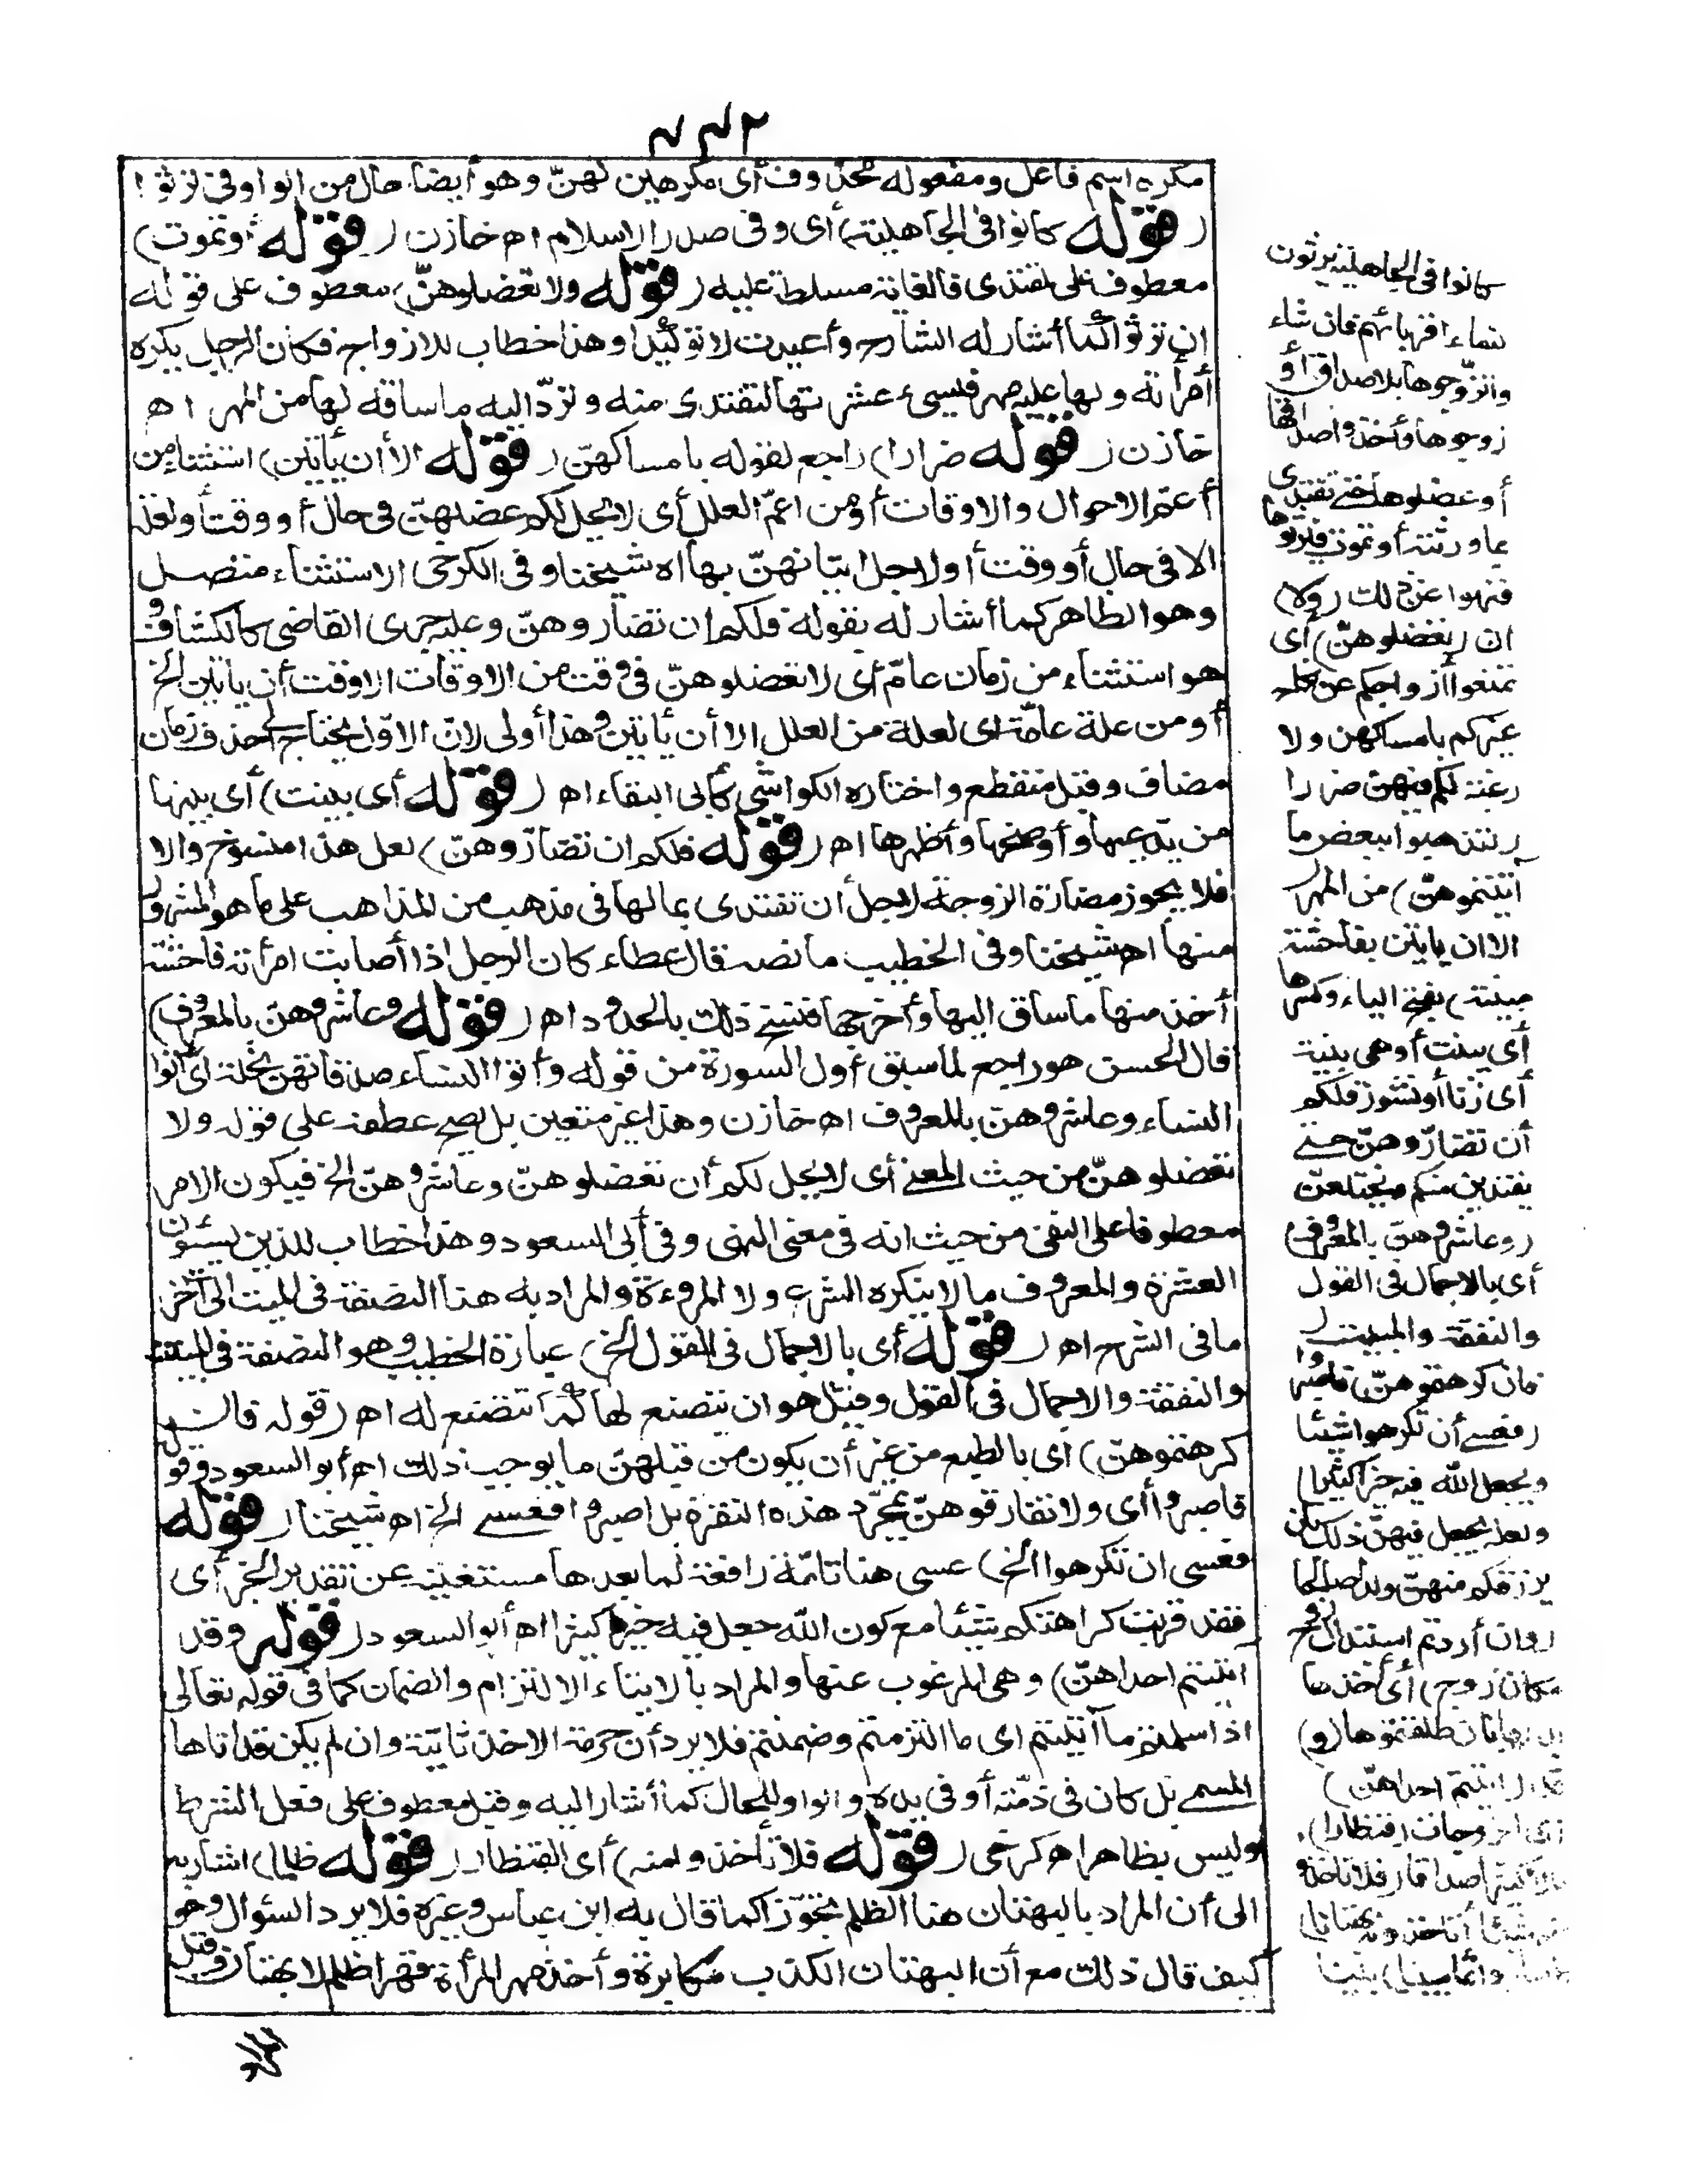 ٦٦٢
مكره اسم فاعل ومفعوله محذوف أى مكرهين لهنّ وهو أيضا حال من الواو فى ترثوا
(قوله كانوا فى الجاهلية) أى وفى صدر الاسلام اه خازن (قوله أو تموت)
معطوف على تفتدى فالغاية مسلطة عليه (قوله ولا تعضلوهنّ) معطوف على قوله
ان ترثوا كما أشار له الشارح وأعيدت لا توكيدا وهذا خطاب للازواج فكان الرجل يكره
امرأته ولها عليه مهر فيسىء عشرتها لتفتدى منه وتردّ اليه ما ساقه لها من المهر اه
خازن (قوله ضرارا) راجع لقوله بامساكهنّ (قوله الا أن يأتين) استثناء من
أعمّ الاحوال والاوقات أو من اعمّ العلل أى لا يحل لكم عضلهنّ فى حال أو وقت أو لعلة
الا فى حال أو وقت أو لاجل اتيانهنّ بها اه شيخنا وفى الكرخى الاستثناء متصل
وهو الظاهر كما أشار له بقوله فلكم ان تضاروهنّ وعليه جرى القاضى كالكشاف و
هو استثناء من زمان عامّ أى لا تعضلوهنّ فى وقت من الاوقات الا وقت أن يأتين الخ
أو من علة عامّة اى لعلة من العلل الا أن يأتين وهذا أولى لانّ الاوّل يحتاج الى حذف زمان
مضاف وقيل منقطع واختاره الكواشى كأبى البقاء اه (قوله أى بينت) أى بينها
من يدّعيها وأوضحها وأظهرها اه (قوله فلكم ان تضارّوهنّ) لعل هذا منسوخ والا
فلا يجوز مضارة الزوجة لاجل أن تفتدى بمالها فى مذهب من المذاهب على ما هو المشهور
منها اه شيخنا وفى الخطيب ما نصه قال عطاء كان الرجل اذا أصابت امرأته فاحشة
أخذ منها ما ساق اليها وأخرجها فنسخ ذلك بالحدود اه (قوله وعاشروهنّ بالمعروف)
قال الحسن هو راجع لما سبق أول السورة من قوله وأتوا النساء صدقاتهن نحلة أى أتوا
النساء وعاشروهن بالمعروف اه خازن وهذا غير متعين بل يصح عطفه على قوله ولا
تعضلوهنّ من حيث المعنى أى لا يحل لكم أن تعضلوهنّ وعاشروهنّ الخ فيكون الامر
معطوفا على النفى من حيث انه فى معنى النهى وفى أبى السعود وهذا خطاب للذين يسيئون
العشرة والمعروف ما لا ينكره الشرع ولا المروءة والمراد به هنا النصفة فى المبيت الى آخر
ما فى الشرح اه (قوله أى بالاجمال فى القول الخ) عبارة الخطيب وهو النصفة فى المبيت
والنفقة والاجمال فى القول وقيل هو ان يتصنع لها كما تتصنع له اه (قوله فان
كرهتموهنّ) اى بالطبع من غير أن يكون من قبلهنّ ما يوجب ذلك اه أبو السعود وقوله
فاصبروا أى ولا تفارقوهنّ بمجرّد هذه النفرة بل اصبروا فعسى الخ اه شيخنا (قوله
فعسى ان تكرهوا الخ) عسى هنا تامّة رافعة لما بعدها مستغنية عن تقدير الخبر أى
فقد قربت كراهتكم شيئا مع كون الله جعل فيه خيرا كثيرا اه أبو السعود (قوله وقد
اتيتم احداهنّ) وهى المرغوب عنها والمراد بالايتاء الالتزام والضمان كما فى قوله تعالى
اذا سلمتم ما آتيتم اى ما التزمتم وضمنتم فلا يرد أن حرمة الاخذ ثابتة وان لم يكن قد اتاها
المسمى بل كان فى ذمّته أو فى يده والواو للحال كما أشار اليه وقيل معطوف على فعل الشرط
وليس بظاهر اه كرخى (قوله فلا تأخذوا منه) أى القنطار (قوله ظلما) اشار به
الى أن المراد بالبهتان هنا الظلم تجوّزا كما قال به ابن عباس وغيره فلا يرد السؤال وهو
كيف قال ذلك مع أن البهتان الكذب مكابرة وأخذ مهر المرأة قهرا ظلم لا بهتان وقيل
كانوا فى الجاهلية يرثون
نساء اقربائهم فان شاء
وا تزوّجوها بلا صداق أو
زوجوها وأخذوا صداقها
أو عضلوها حتى تفتدى
بما ورثته أو تموت فيرثوها
فنهوا عن ذلك (ولا)
ان (تعضلوهنّ) أى
تمنعوا أزواجكم عن نكاح
غيركم بامساكهن ولا
رغبة لكم فيهن ضرارا
(لتذهبوا ببعض ما
آتيتموهنّ) من المهر
الا ان يأتين بفاحشة
مبينة) بفتح الياء وكسرها
أى بينت أو هى بينة
أى زنا أو نشوز فلكم
أن تضارّوهنّ حتى
يفتدين منكم ويختلعنّ
(وعاشروهنّ بالمعروف)
أى بالاجمال فى القول
والنفقة والمبيت (
فان كرهتموهنّ) فاصبروا
(فعسى أن تكرهوا شيئا
ويجعل الله فيه خيرا كثيرا)
ولعله يجعل فيهنّ ذلك بأن
يرزقكم منهنّ ولدا صالحا
(وان أردتم استبدال زوج
مكان زوج) أى أخذها
بدلها بان طلقتموها (و)
قد (اتيتم احداهنّ)
أى الزوجات (قنطارا)
مالا كثيرا صداقا (فلا تأخذوا
منه شيئا أتأخذونه بهتانا)
ظلما (واثما مبينا) بينا